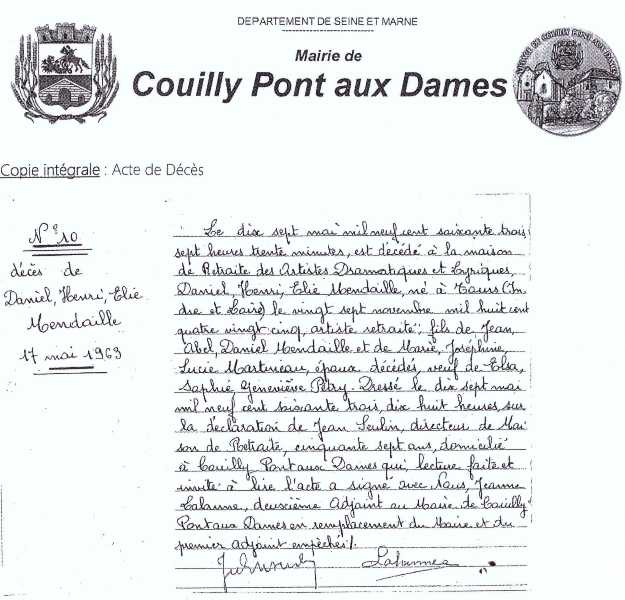 DEPARTEMENT DE SEINE ET MARNE
Mairie de
Couilly Pont aux Dames
Copie intégrale : Acte de Décès
N° 10
décès de
Daniel, Henri, Elie
Mendaille
17 mai 1963
Le dix sept mai mil neuf cent soixante trois
sept heures trente minutes, est décédé à la maison
de Retraite des Artistes Dramatiques et Lyriques,
Daniel, Henri, Elie Mendaille, né à Tours (In
dre et Loire) le vingt sept novembre mil huit cent
quatre vingt cinq, artiste retraité ; fils de Jean
Abel, Daniel Mendaille et de Marie, Joséphine,
Lucie Martineau, époux décédés, veuf de Elsa,
Sophie Geneviève Petry. Dressé le dix sept mai
mil neuf cent soixante trois, dix huit heures, sur
la déclaration de Jean directeur de Mai
son de Retraite, cinquante sept ans, domicilié
à Couilly Pont aux Dames qui, lecture faite et
invité à lire l'acte a signé avec Nous, Jeanne
Lalanne, deuxième Adjoint au Maire de Couilly
Pont aux Dames en remplacement du Maire et du
premier adjoint empêchés /.